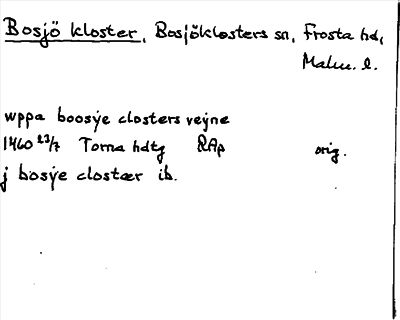 Bosjö kloster, Bosjöklosters sn, Frosta hd,
Malm. l.
wppa boosÿe closters vejne
1460 23/7 Torna hdtg RAp orig.
j bosÿe clostær ib.